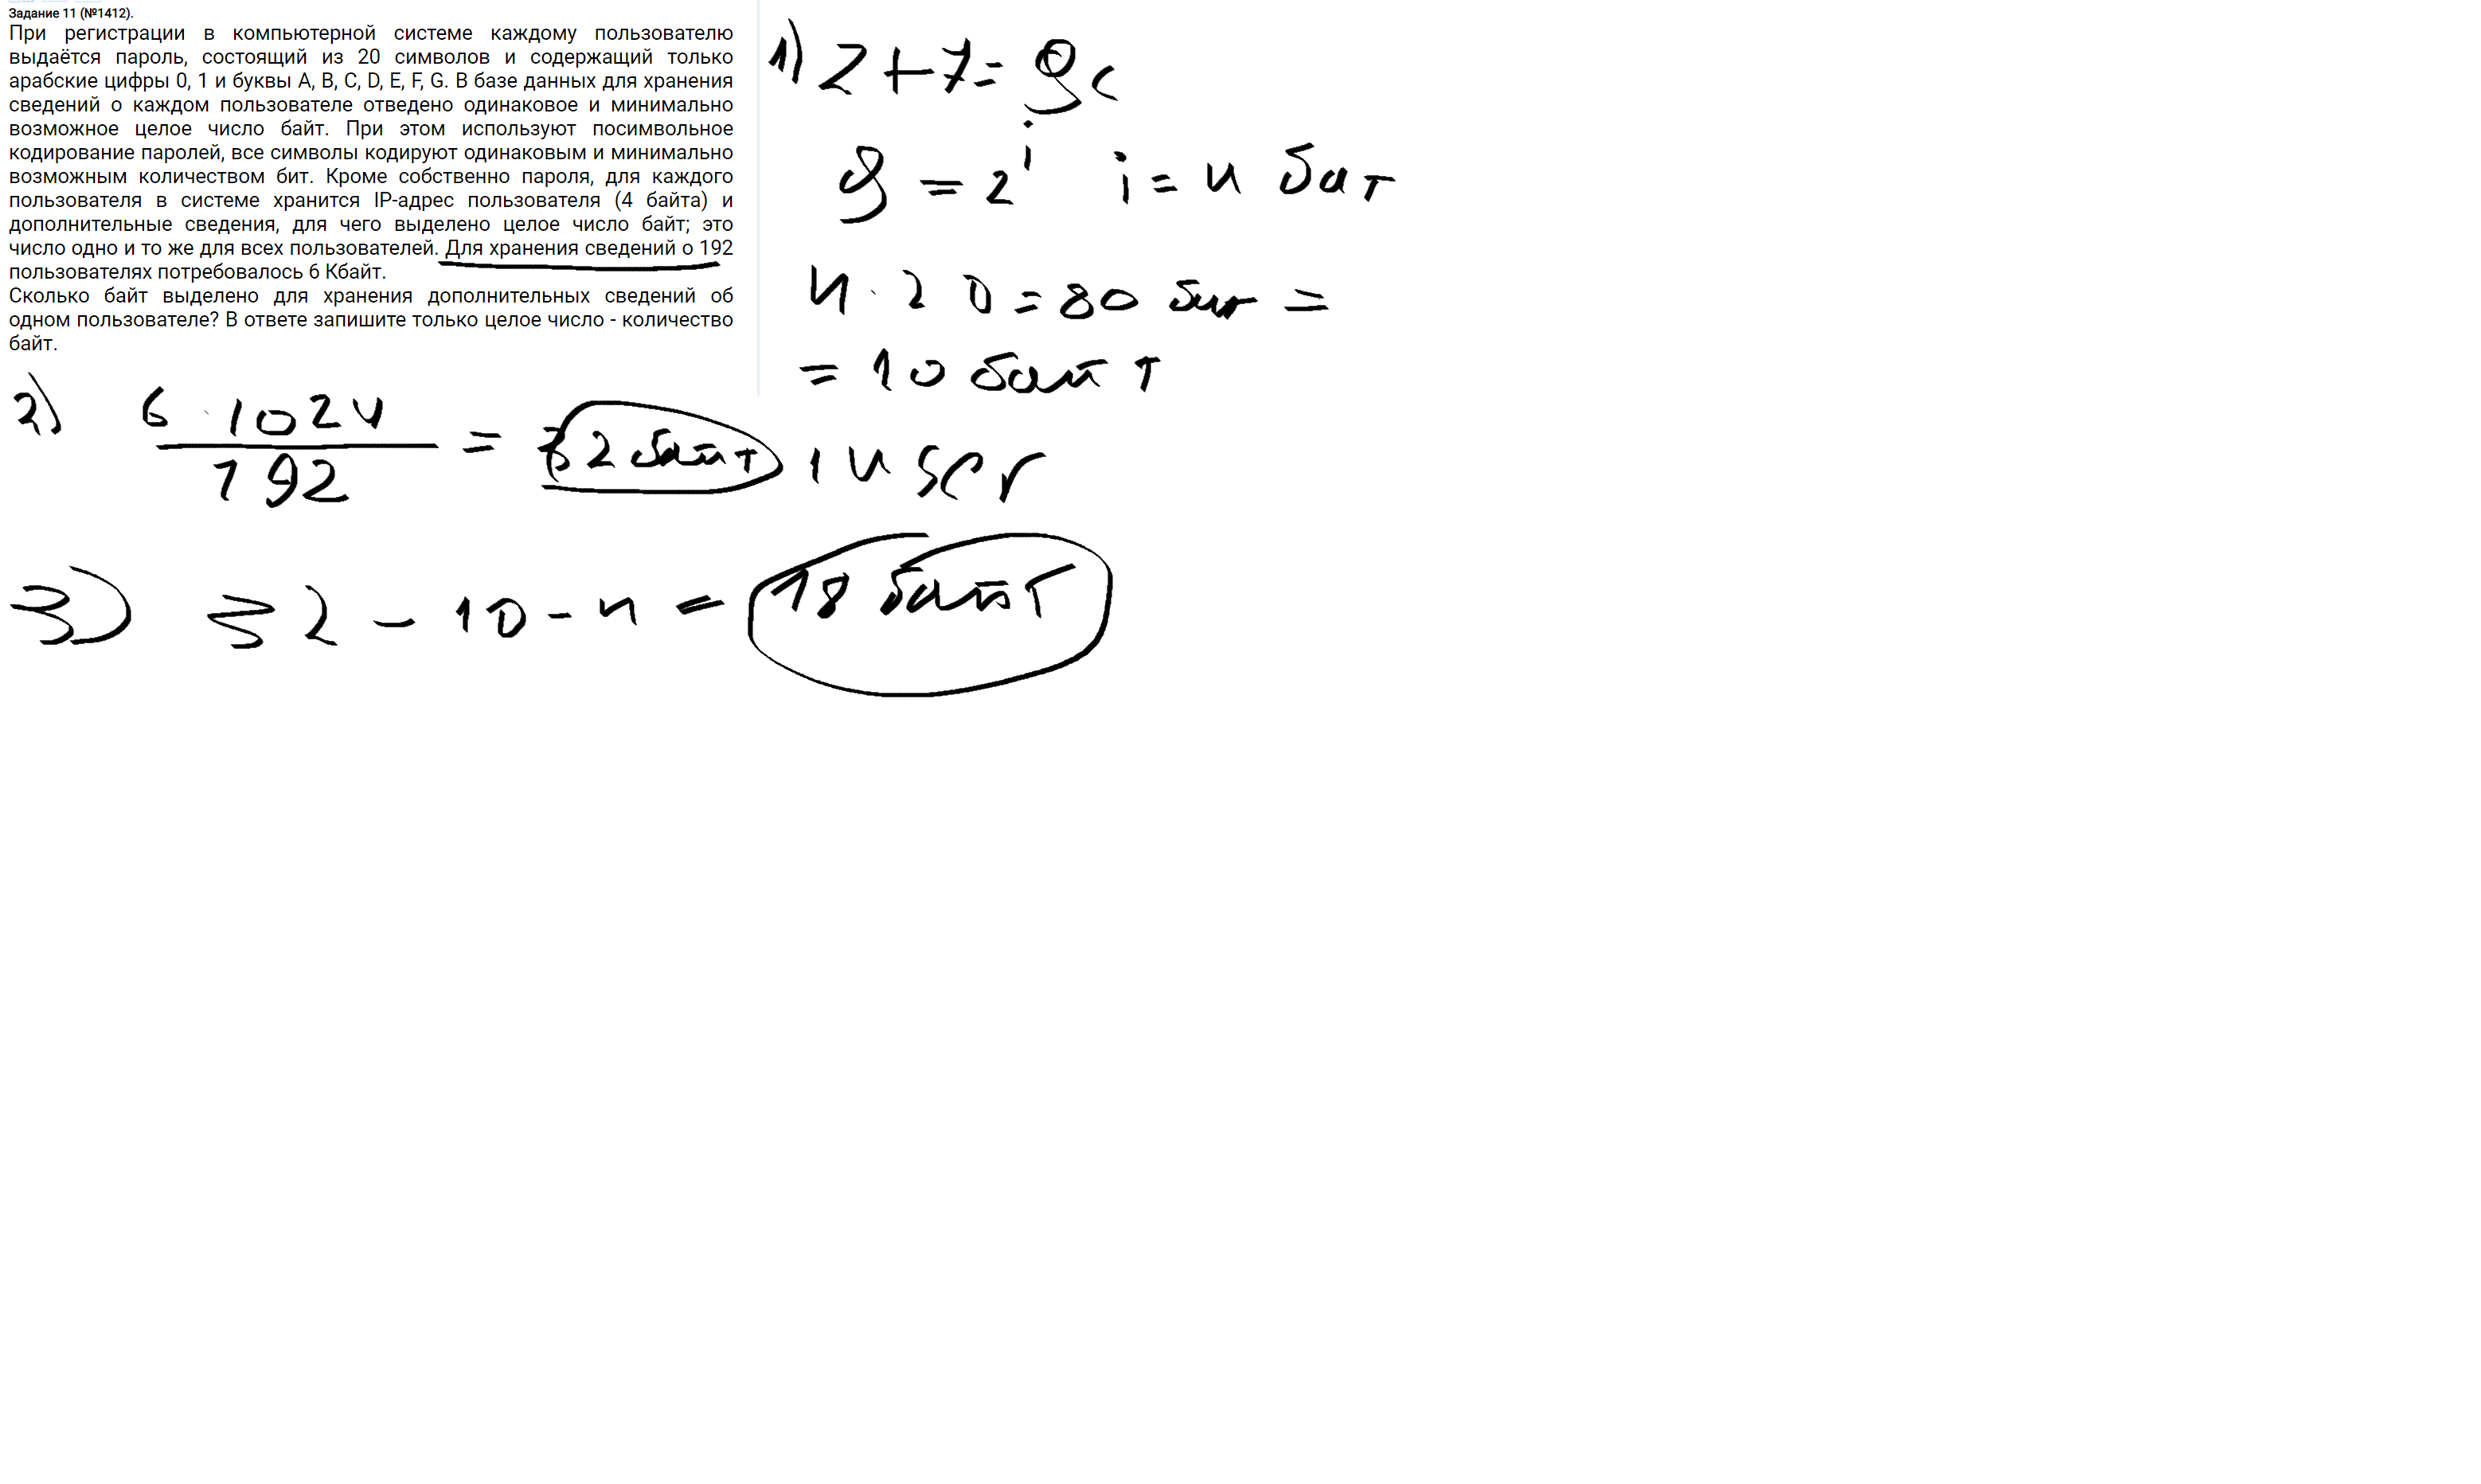 Задание 11 (№1412).
При регистрации в компьютерной системе каждому пользователю
выдаётся пароль, состоящий из 20 символов и содержащий только
арабские цифры 0, 1 и буквы A, B, C, D, E, F, G. В базе данных для хранения
сведений о каждом пользователе отведено одинаковое и минимально
возможное целое число байт. При этом используют посимвольное
кодирование паролей, все символы кодируют одинаковым и минимально
возможным количеством бит. Кроме собственно пароля, для каждого
пользователя в системе хранится IP-адрес пользователя (4 байта) и
дополнительные сведения, для чего выделено целое число байт; это
число одно и то же для всех пользователей. Для хранения сведений о 192
пользователях потребовалось 6 Кбайт.
Сколько байт выделено для хранения дополнительных сведений об
одном пользователе? В ответе запишите только целое число - количество
байт.
1) 2 + 7 = 9 с
9 = 2^i i = 4 бит
4 · 20 = 80 бит =
= 10 байт
2) 6 · 1024
192
= 32 байт 1 user
3) 32 - 10 - 4 = 18 байт